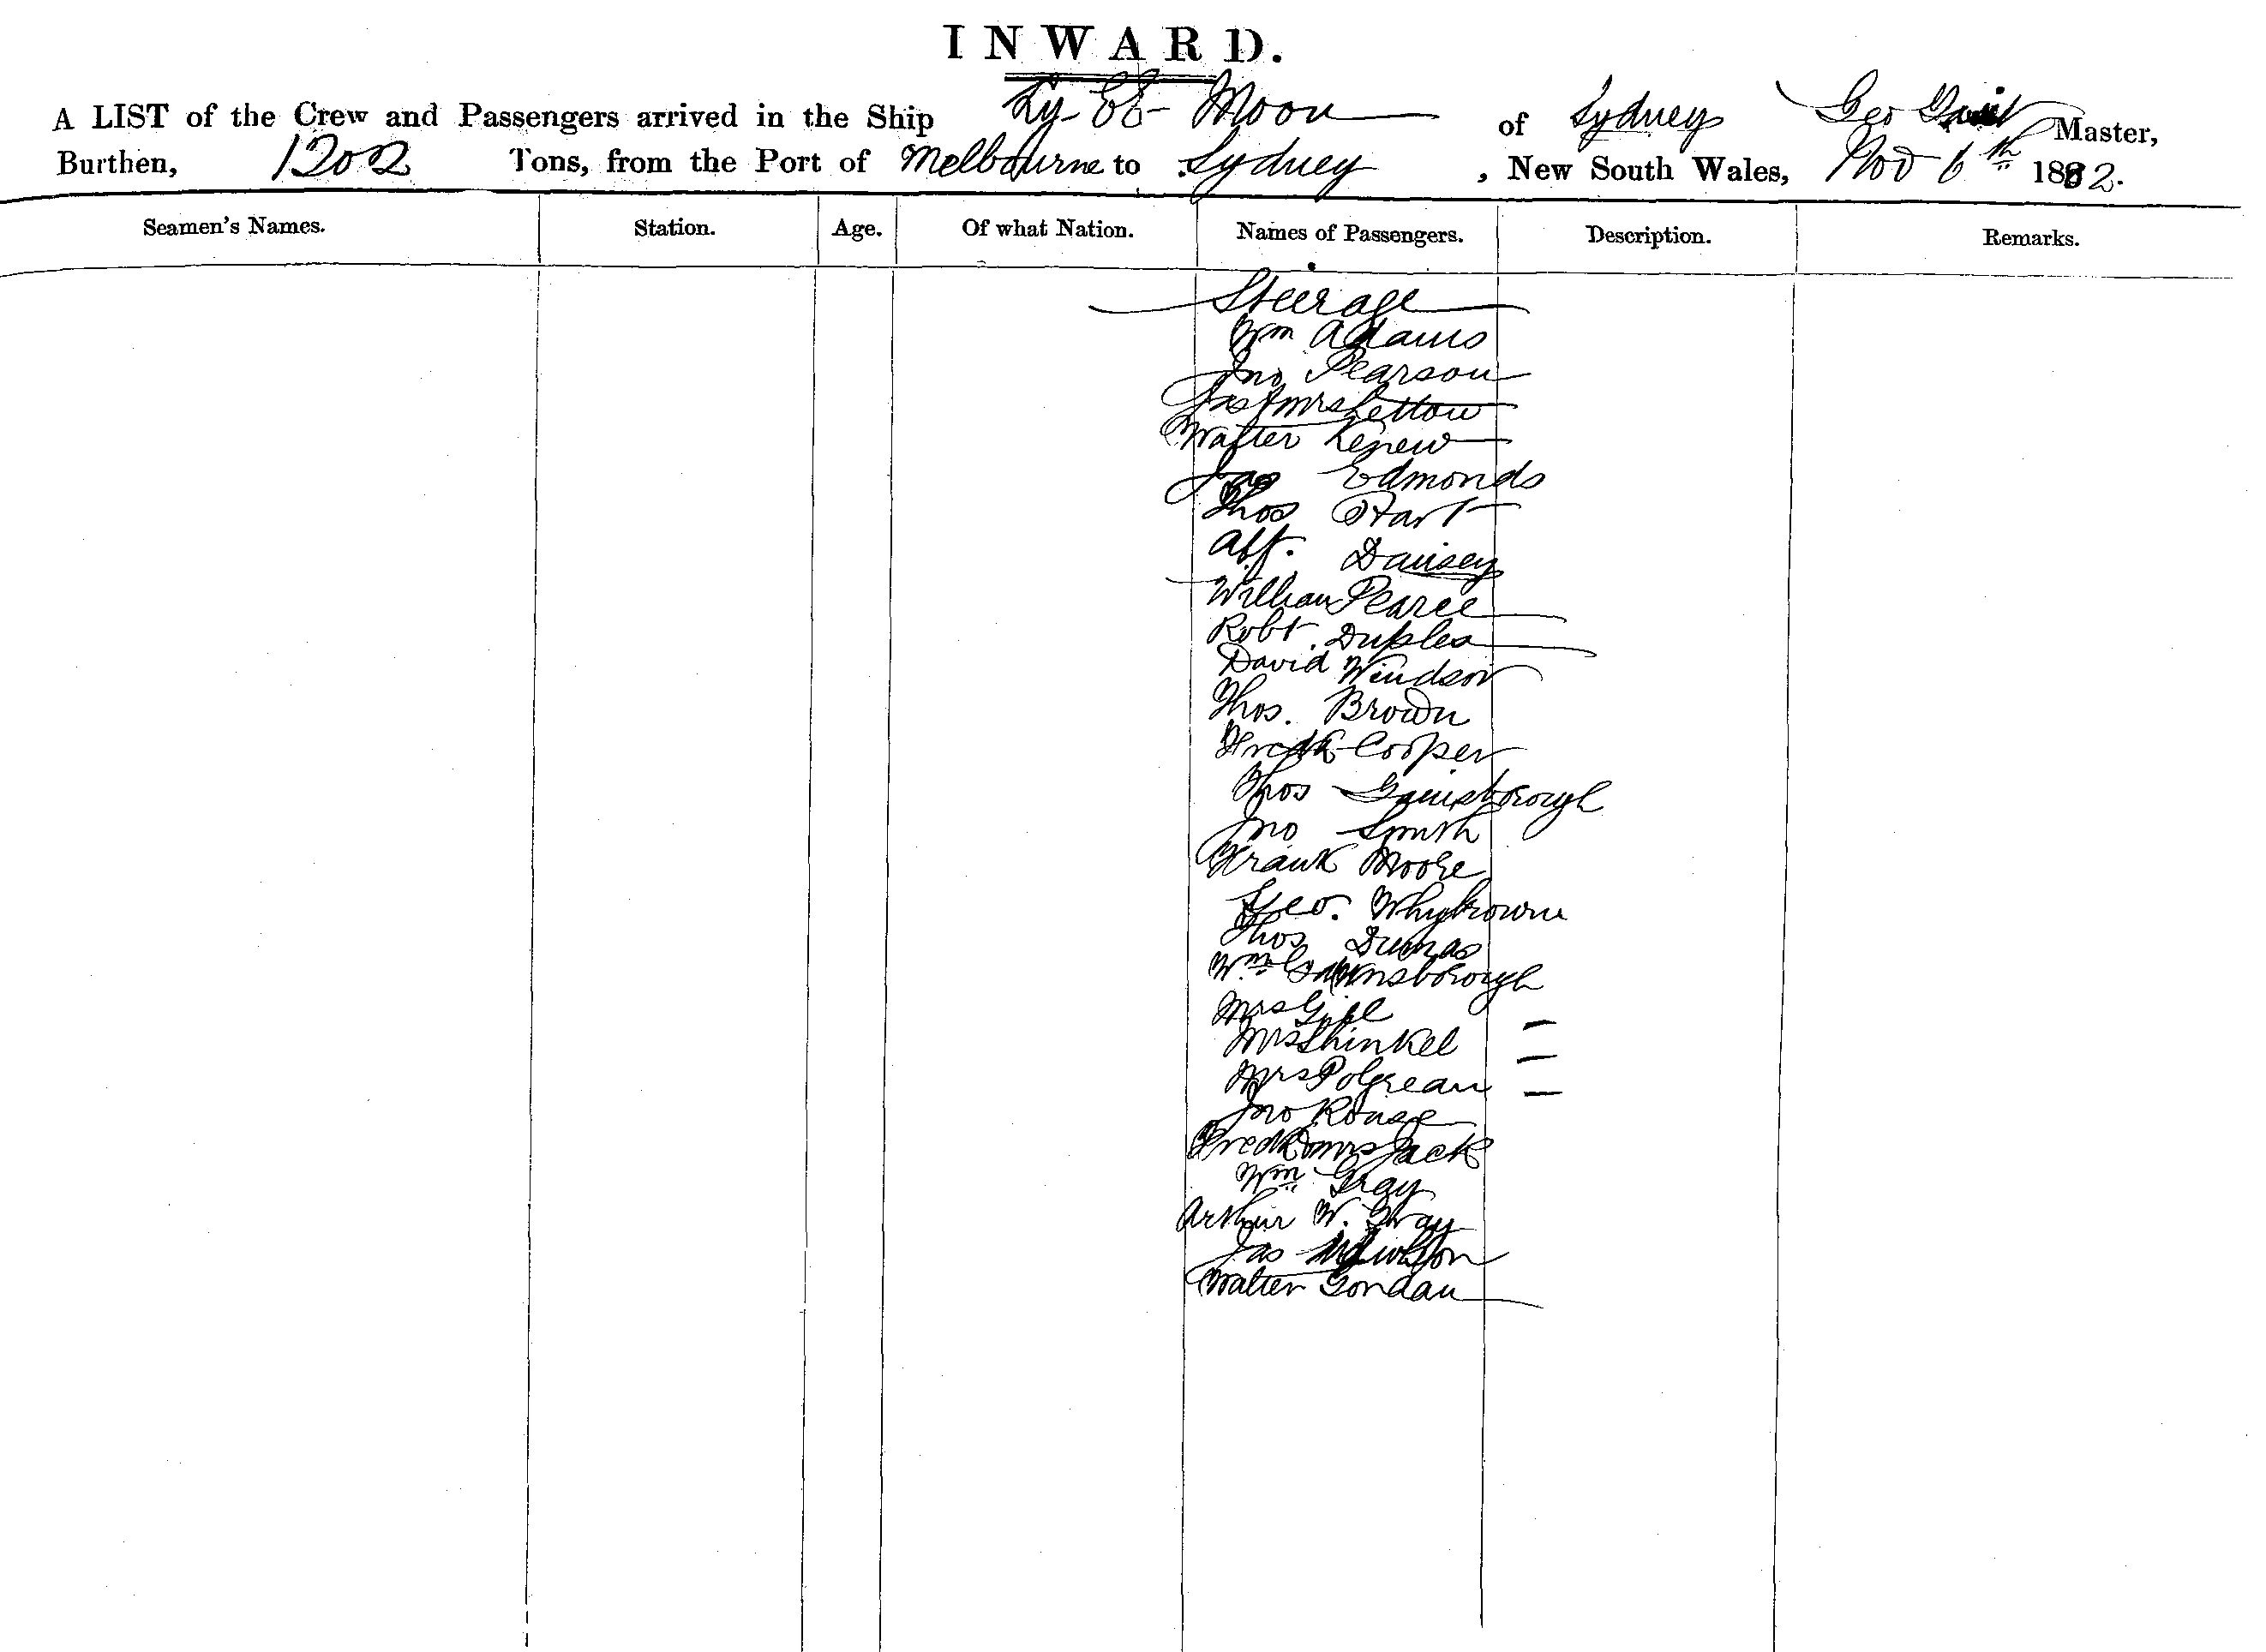 INWARD.
A LIST of the Crew and Passengers arrived in the Ship Ly-EE-Moon of Sydney Geo Master,
Burthen, 1202 Tons, from the Port of Melbourne to Sydney, New South Wales, Nov 6th 1882.
Seamen's Names. Station. Age. Of what Nation. Names of Passengers. Description. Remarks.
Steerage
Wm Adams
Jno Pearson
Jas & Mrs Lettow
Walter Kenew
Jas Edmonds
Thos Hart
Alf. Dansey
William Pearce
Robt. Duplea
David Windsor
Thos. Brown
Fredk Cooper
Thos Gainsborough
Jno Smith
Frank Moore
Geo. Whybrown
Thos Dumas
Wm Gainsborough
Mrs Gill
Mrs Shinkel
Mrs Polgrean
Jno Rouse
Fredk & Mrs Jack
Wm Gray
Arthur W. Gray
Jas
Walter Gondau